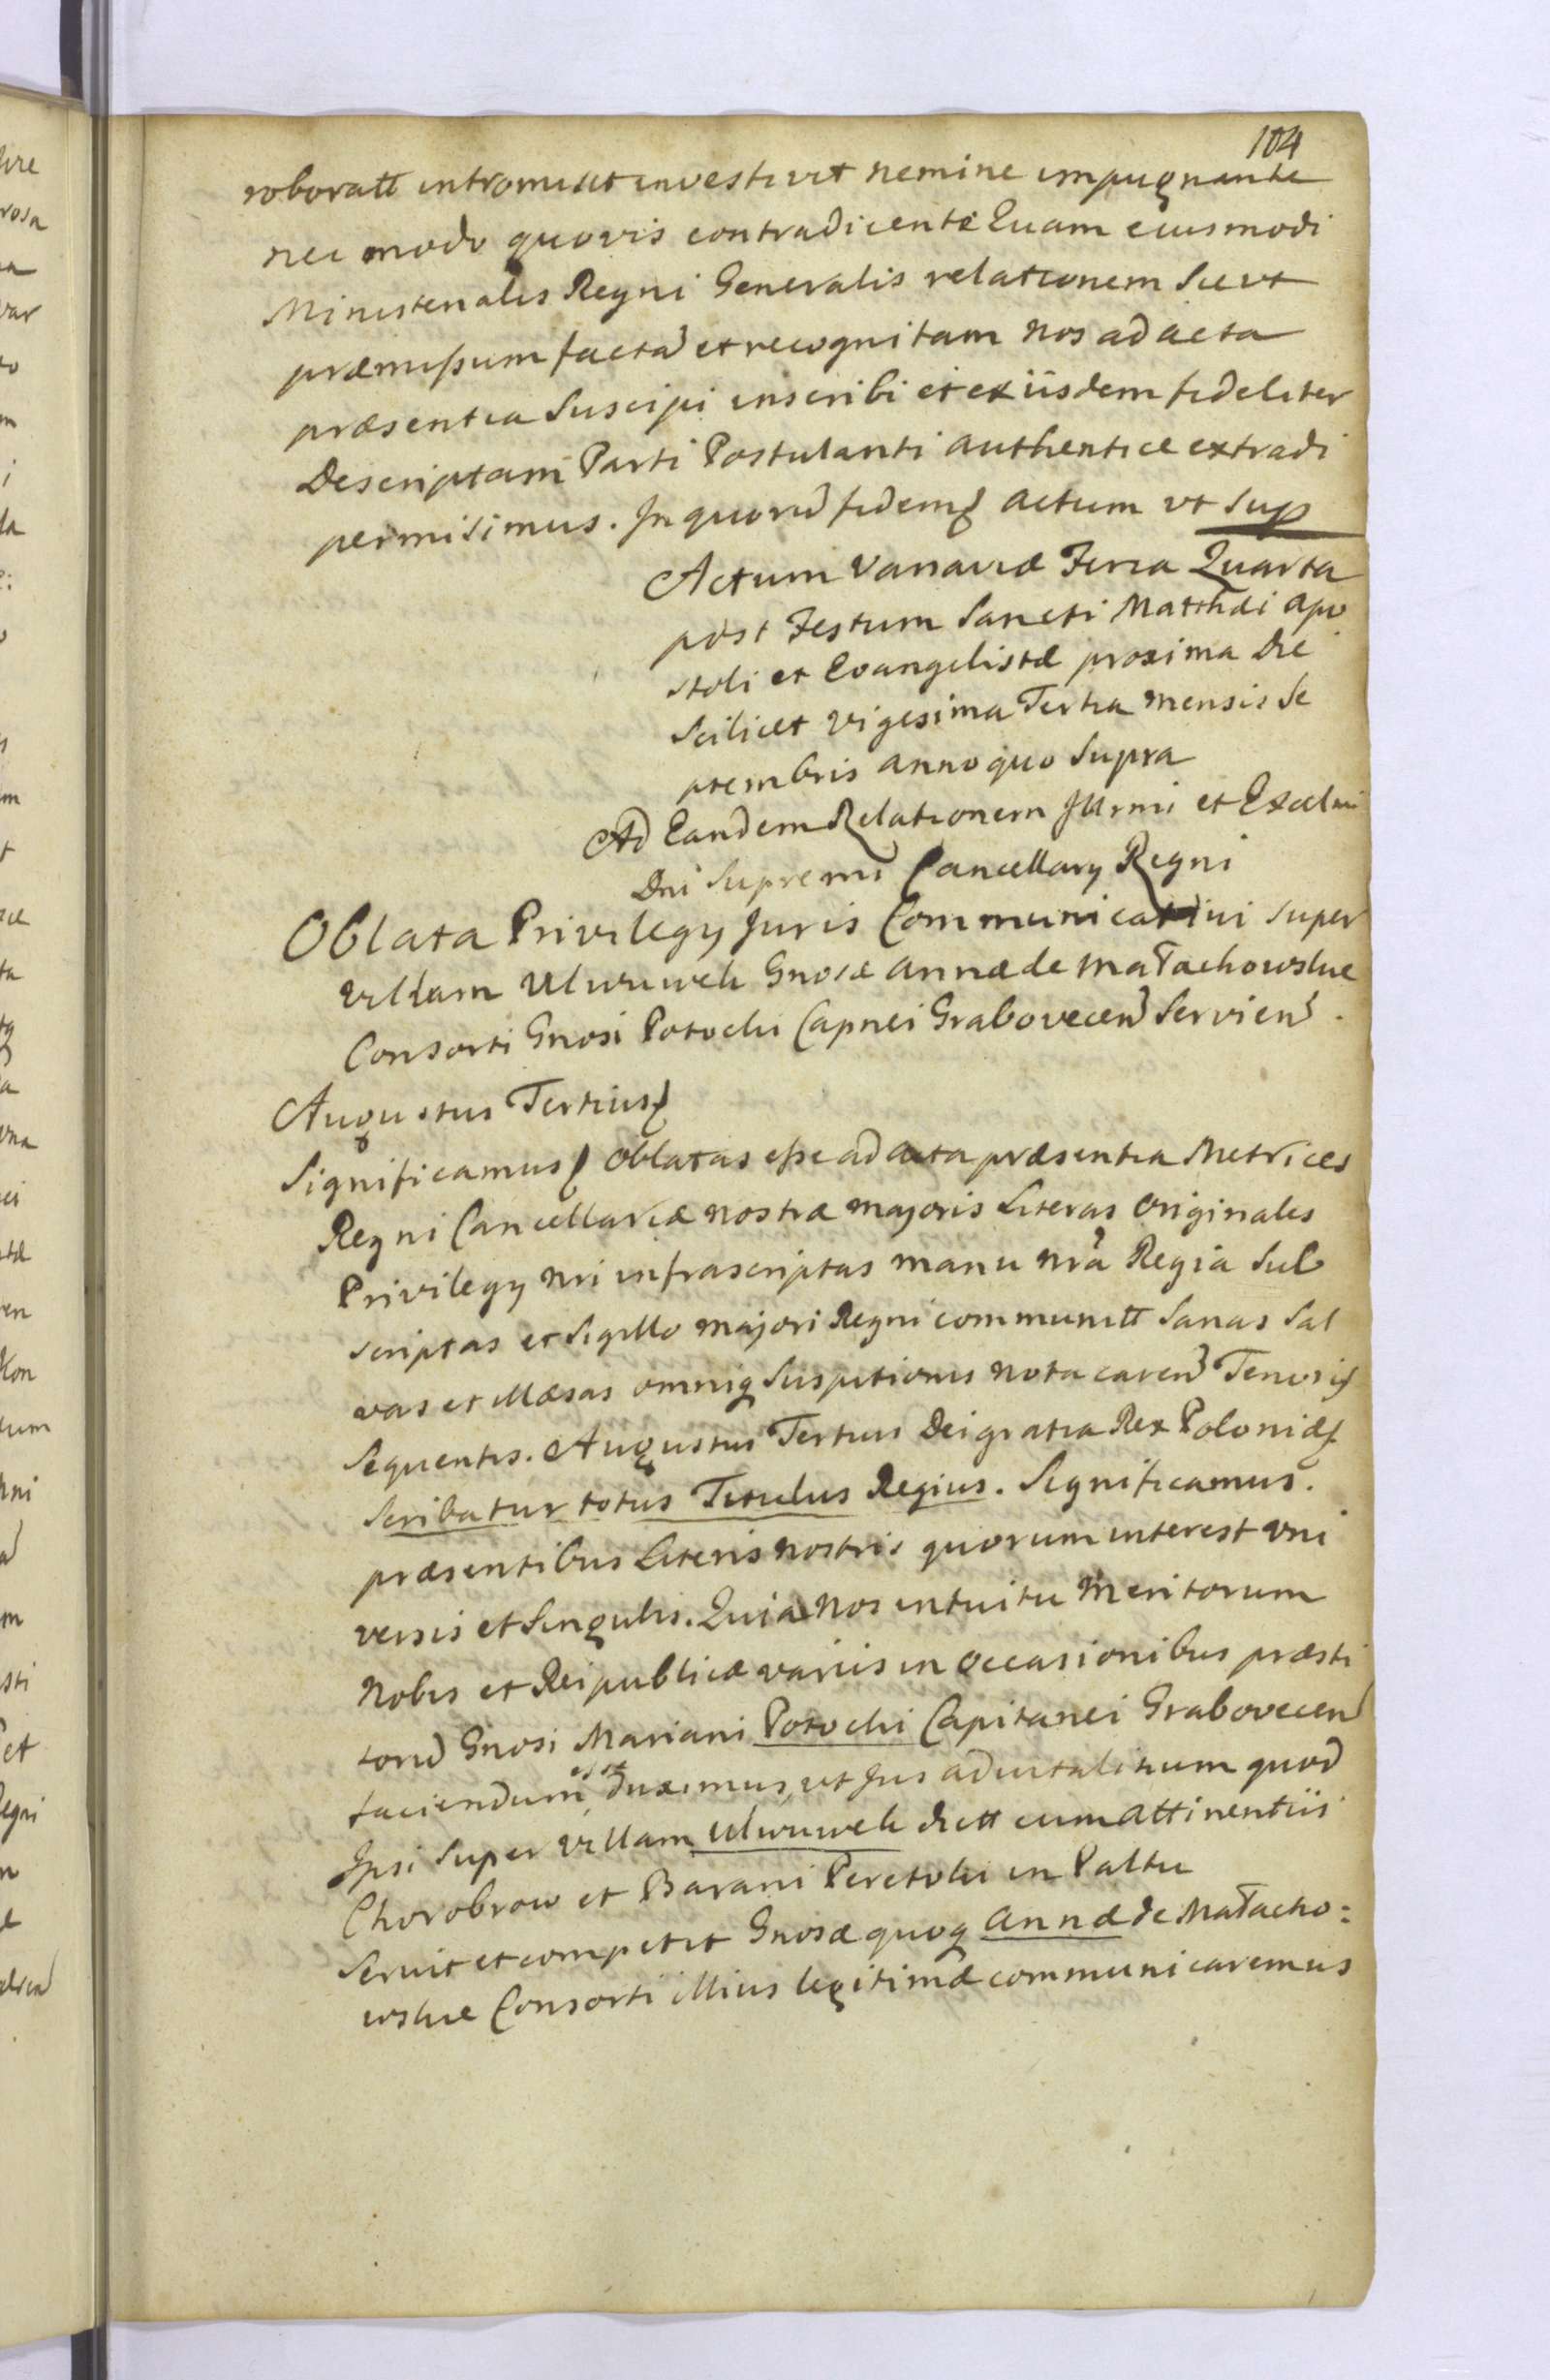 104
roboratt intromisit investivit nemine impugnante
nec modo quovis contradicente Quam eiusmodi
Ministerialis Regni Generalis relationem sicut
præmissum factã et recognitam nos ad acta
præsentia suscipi inscribi et ex iisdem fideliter
Descriptam Parti Postulanti authentice extradi
permisimus. In quorũ fidem Actum vt sup
Actum Varsaviæ Feria Quarta
post Festum Sancti Matthæi Apo
stoli et Evangelistæ proxima Die
Scilicet Vigesima Tertia mensis Se
ptembris anno quo Supra
Ad Eandem Relationem Illrmi et Excelmi
Dni Supremi Cancellary Regni
Oblata Privilegy Juris Communicativi super
villam Uhruwek Gnosæ Annæ de Małachowskie
Consorti Gnosi Potocki Capnei Grabovecen Servien.
Augustus Tertius
Significamus Oblatas esse ad acta præsentia Metrices
Regni Cancellariæ nostræ majoris Literas Originales
Privilegy nri infrascriptas manu nrã Regia sub
scriptas et Sigillo majori Regni communitt Sanas Sal
vas et illæsas omniq Suspitionis nota caren Tenoris
sequentis. Augustus Tertius Dei gratia Rex Poloniæ
Scribatur totus Titulus Regius. Significamus.
præsentibus Literis nostris quorum interest vni
versis et Singulis. Quia nos intuitu Meritorum
Nobis et Reipublicæ variis in occasionibus præsti
torũ Gnosi Mariani Potocki Capitanei Grabovecen
faciendum esse duximus, ut Jus advitalitium quod
Ipsi super villam Uhruwek dictt cum attinentiis
Chorobrow et Barani Peretoki in Palttu
Servit et competit Gnosæ quoq Annæ de Małacho:
wskie Consorti illius legitimæ communicaremus